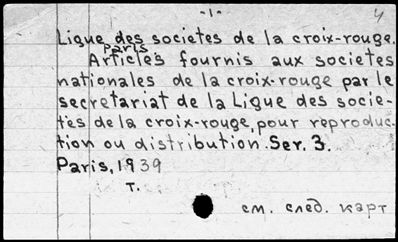 -1-
4
Ligue des societes de la croix-rouge.
Paris
Articles fournis aux societes
nationales de la croix-rouge par le
secretariat de la Ligue des socie-
tes de la croix-rouge, pour reproduc-
tion ou distribution. Ser. 3.
Paris, 1939
т.
см. след. карт